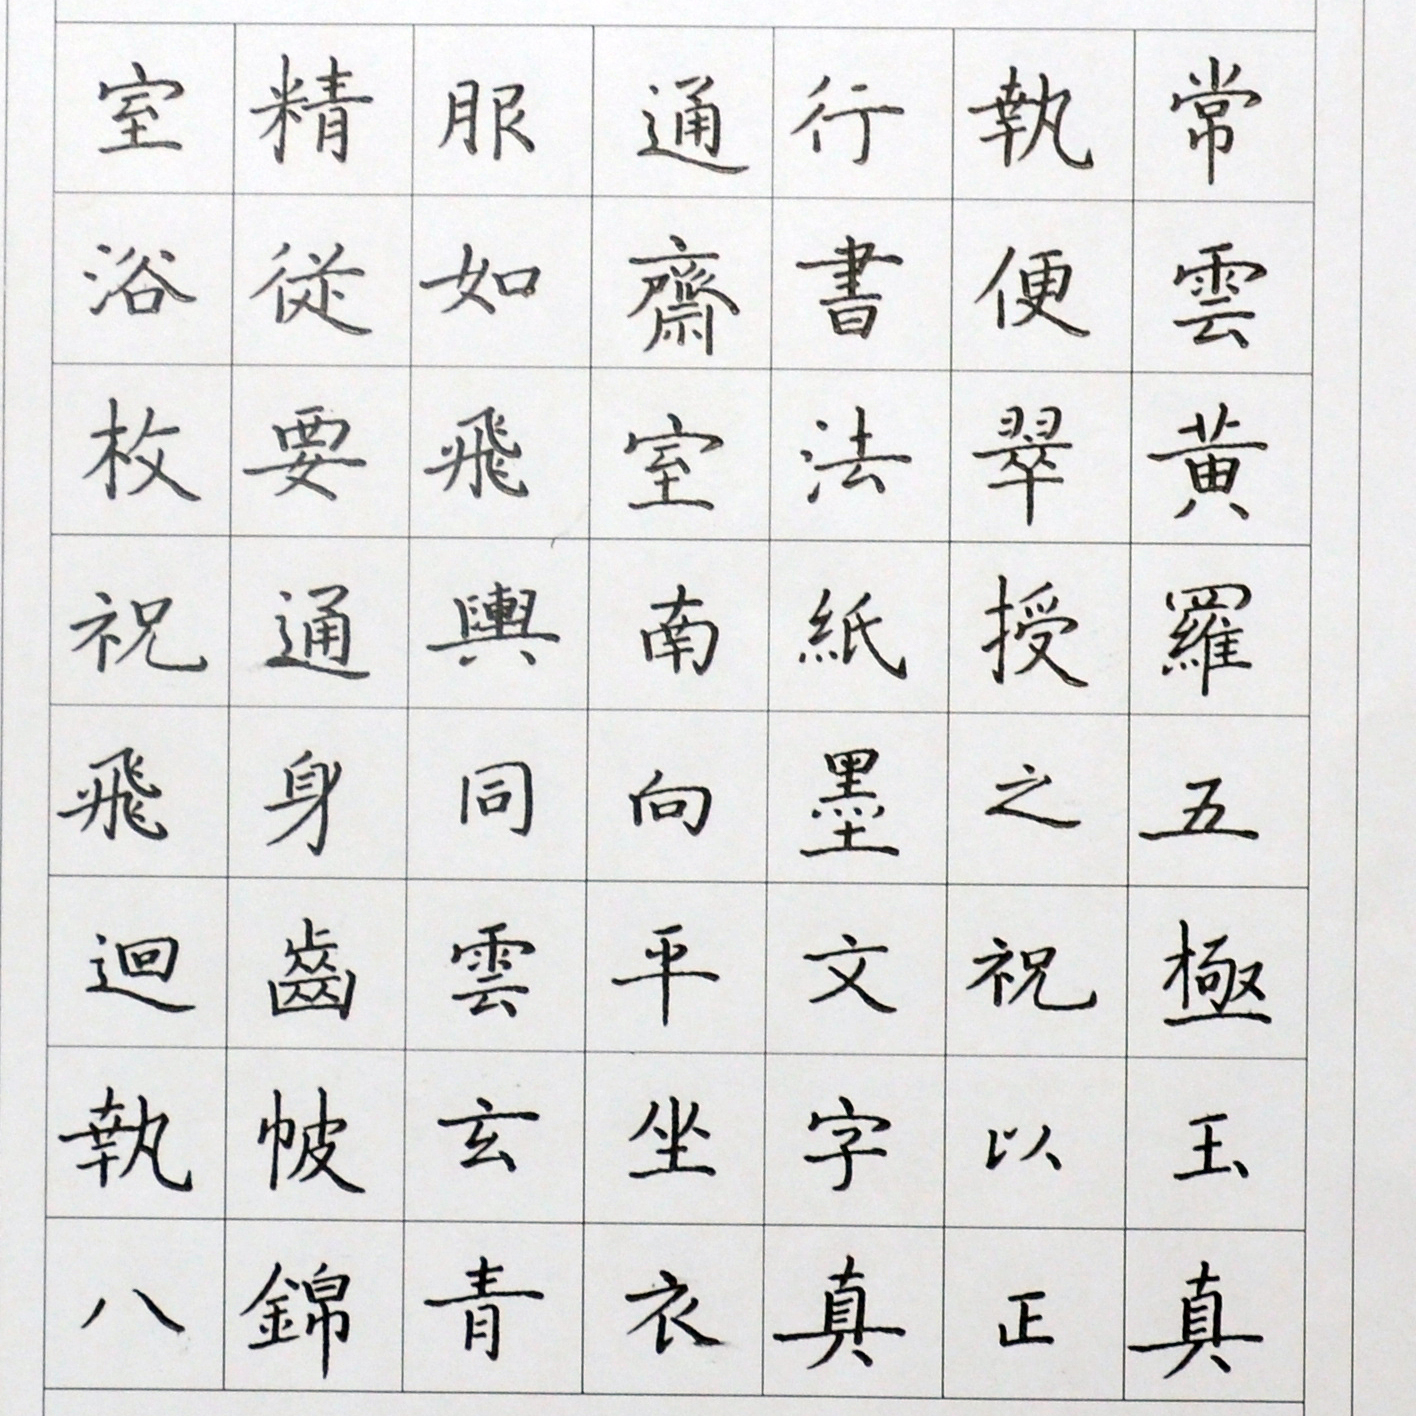 常雲黃羅五極玉真
執便翠授之祝以正
行書法紙墨文字真
通齋室南向平坐衣
服如飛輿同雲玄青
精從要通身齒帔錦
室浴枚祝飛迴執八